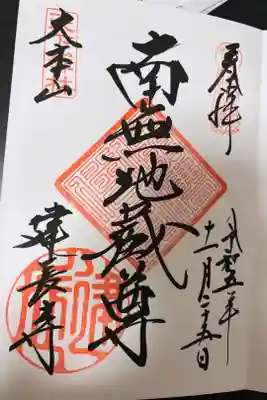 奉拝
令和五年
十一月二十五日
南無地蔵尊
大本山
建長寺